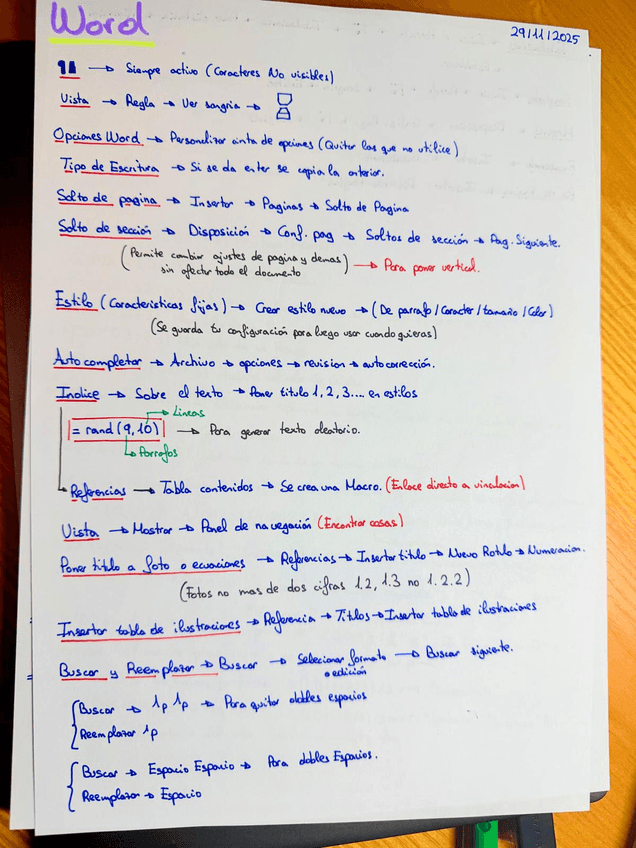 Word
29/11/2025
¶ → Siempre activo (Caracteres No visibles)
Vista → Regla → Ver sangria →
Opciones Word → Personalizar cinta de opciones (Quitar las que no utilice)
Tipo de Escritura → Si se da enter se copia la anterior.
Salto de pagina → Insertar → Paginas → Salto de Pagina
Salto de sección → Disposición → Conf. pag → Saltos de sección → Pag. Siguiente.
(Permite cambiar ajustes de pagina y demas sin afectar todo el documento) → Para poner vertical.
Estilo (Caracteristicas fijas) → Crear estilo nuevo → (De parrafo / Caracter / tamaño / Color)
(Se guarda tu configuración para luego usar cuando quieras)
Auto completar → Archivo → opciones → revision → autocorrección.
Indice → Sobre el texto → Poner titulo 1, 2, 3.... en estilos
→ Lineas
= rand (9,10) → Para generar texto aleatorio.
→ Parrafos
→ Referencias → Tabla contenidos → Se crea una Macro. (Enlace directo a vinculacion)
Vista → Mostrar → Panel de navegación (Encontrar cosas)
Poner titulo a foto o ecuaciones → Referencias → Insertar titulo → Nuevo Rotulo → Numeracion.
(Fotos no mas de dos cifras 1.2, 1.3 no 1.2.2)
Insertar tabla de ilustraciones → Referencia → Titulos → Insertar tabla de ilustraciones
Buscar y Reemplazar → Buscar → Selecionar formato → Buscar siguiente.
o edición
Buscar → ^p ^p → Para quitar dobles espacios
Reemplazar ^p
Buscar → Espacio Espacio → Para dobles Espacios.
Reemplazar → Espacio